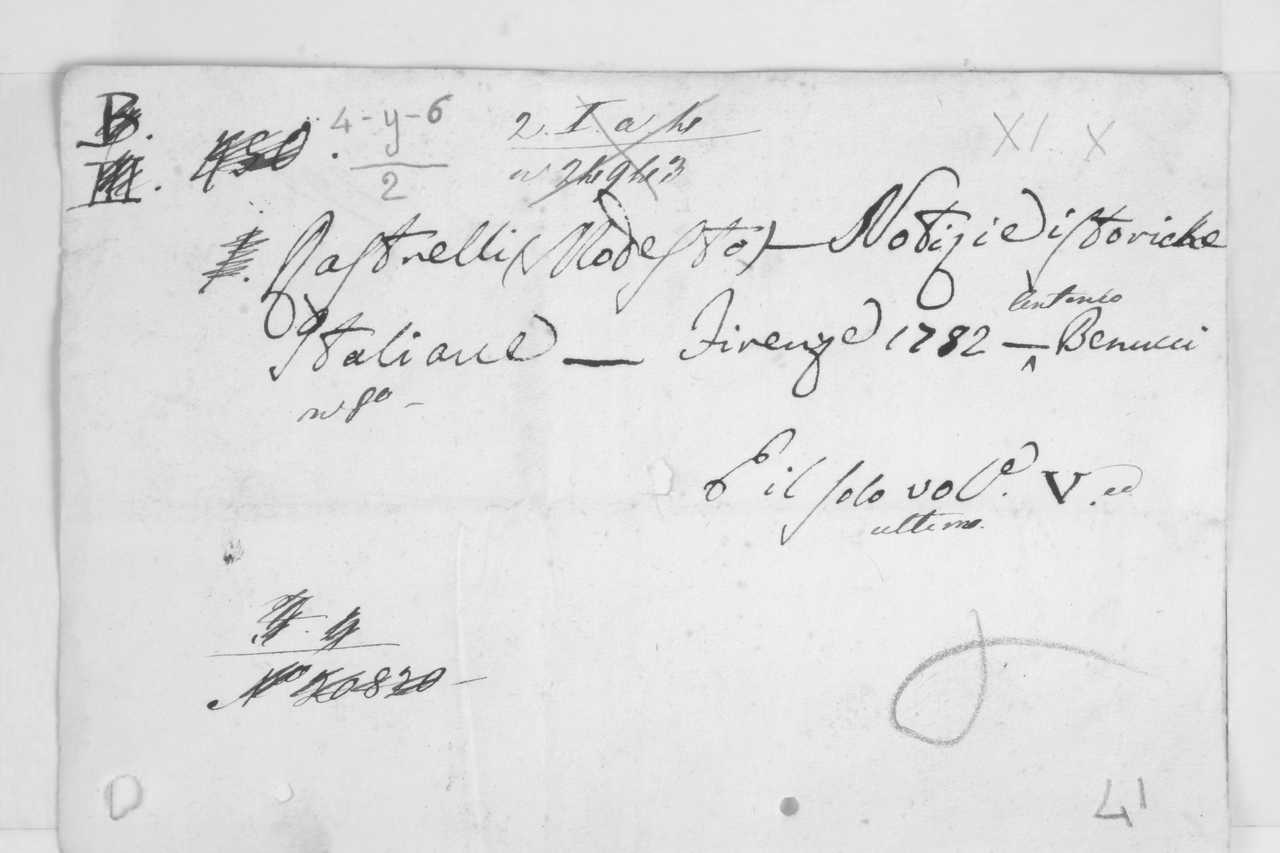 B.
4-y-6
2
2. I. a
XI. X
Rastrelli (Modesto) — Notizie istoriche
Italiane — Firenze 1782 — Antonio Benucci
in 8º —
È il solo vol.e V. ed
ultimo.
Nº 20820 —
41